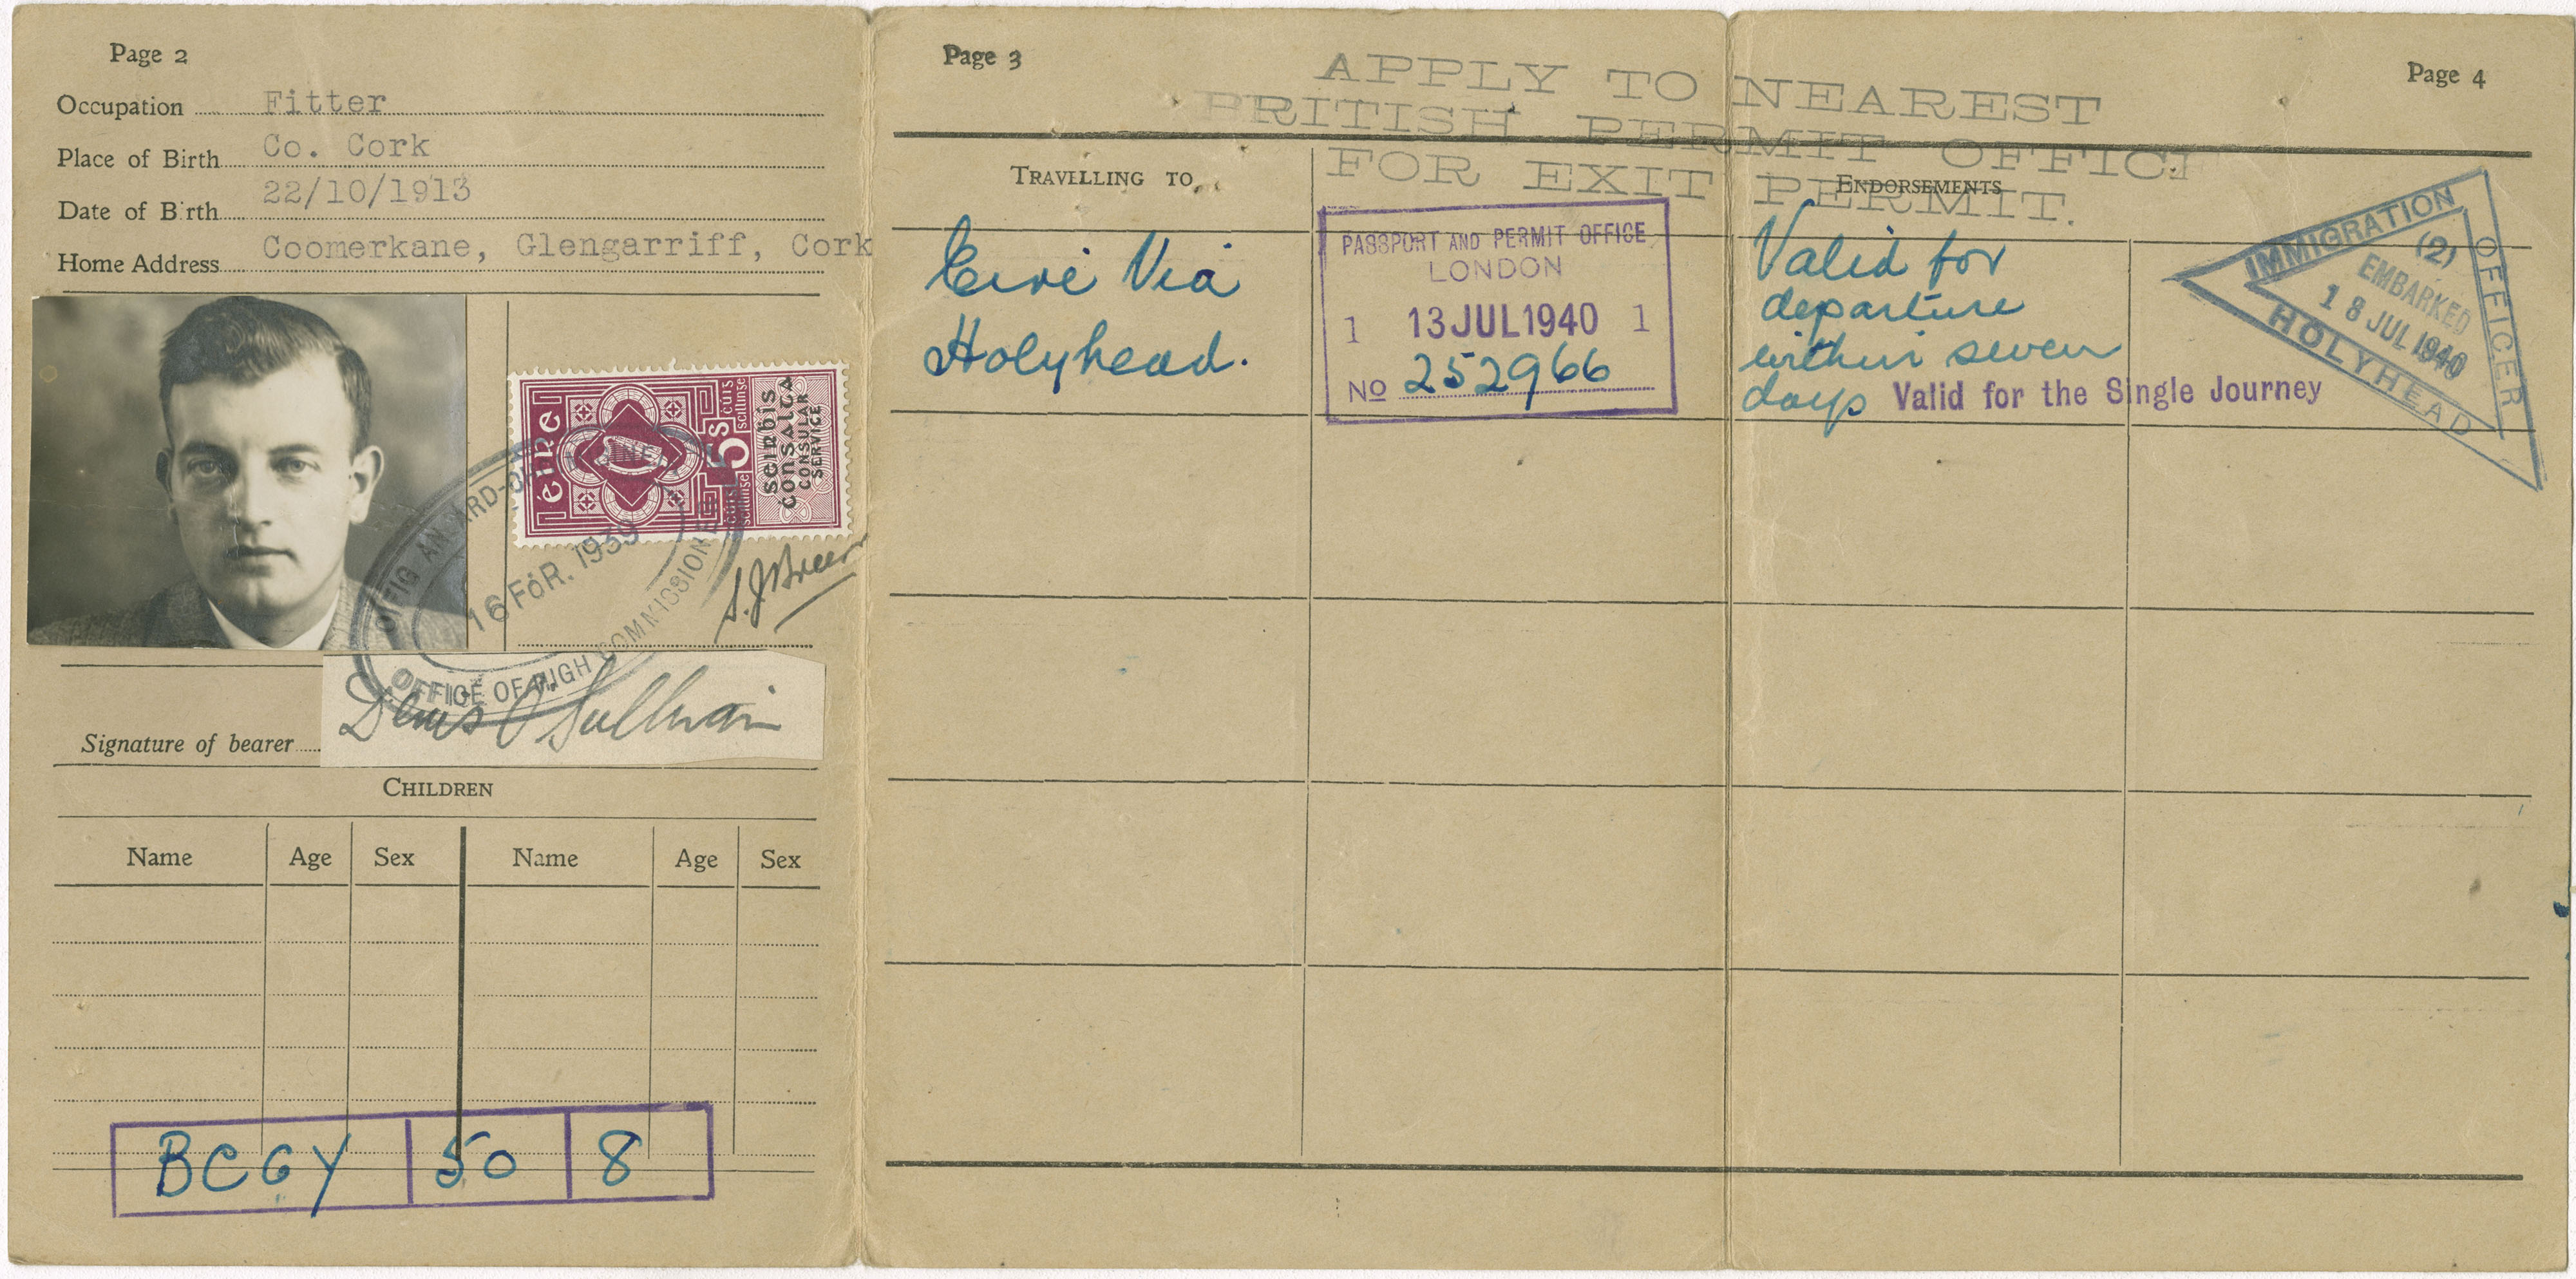 Page 2
Occupation Fitter
Place of Birth Co. Cork
Date of Birth 22/10/1913
Home Address Coomerkane, Glengarriff, Cork
éire
5s
cúig scillinge
seirbís
consalca
CONSULAR
SERVICE
OIFIG AN ARD-
16 FÓR. 1939
OFFICE OF HIGH COMMISSIONER
S.J. Breen
Signature of bearer Denis O'Sullivan
CHILDREN
Name Age Sex Name Age Sex
BCGY 50 8
Page 3
APPLY TO NEAREST
BRITISH PERMIT OFFICE
FOR EXIT PERMIT.
TRAVELLING TO
Eire Via
Holyhead.
PASSPORT AND PERMIT OFFICE
LONDON
1 13 JUL 1940 1
No 252966
Page 4
ENDORSEMENTS
Valid for
departure
within seven
days Valid for the Single Journey
IMMIGRATION OFFICER
(2)
EMBARKED
18 JUL 1940
HOLYHEAD